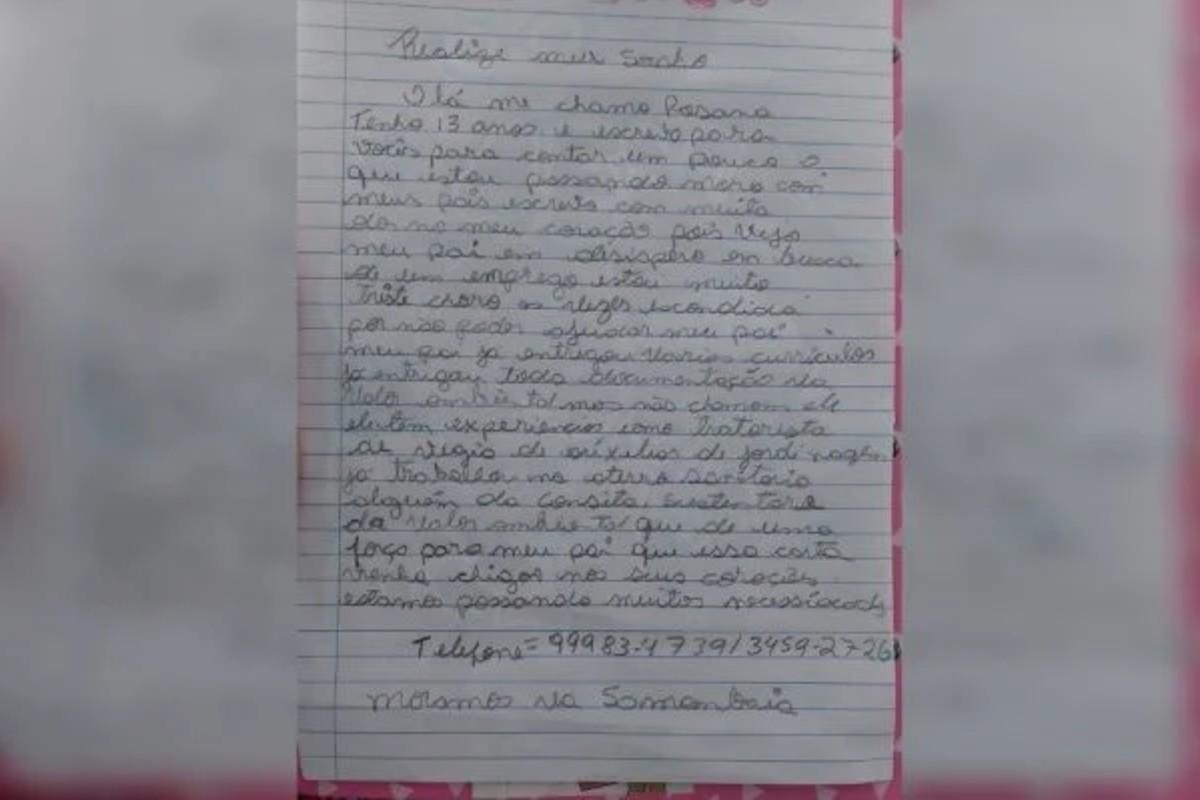 Realize meu Sonho
Olá me chamo Rosana
Tenho 13 anos e escrevo para
vocês para contar um pouco o
que estou passando moro com
meus pais escrevo com muita
dor no meu coração pois vejo
meu pai em desispero em busca
de um emprego estou muito
triste choro as vezes escondida
por não poder ajudar meu pai
meu pai ja entregou varios currículos
ja entregou toda documentação na
Valor ambiental mas não chamam ele
ele tem experiencias como tratorista
de de auxilios de jardinagem
ja trabalhou no aterro sanitario
alguém da Consita, Sustentare
da Valor ambiental que de uma
força para meu pai que essa carta
venha chegar nos seus corações
estamos passando muitos necessidads
Telefone = 99983-4739/3459-2726
Moramos na Samambaia